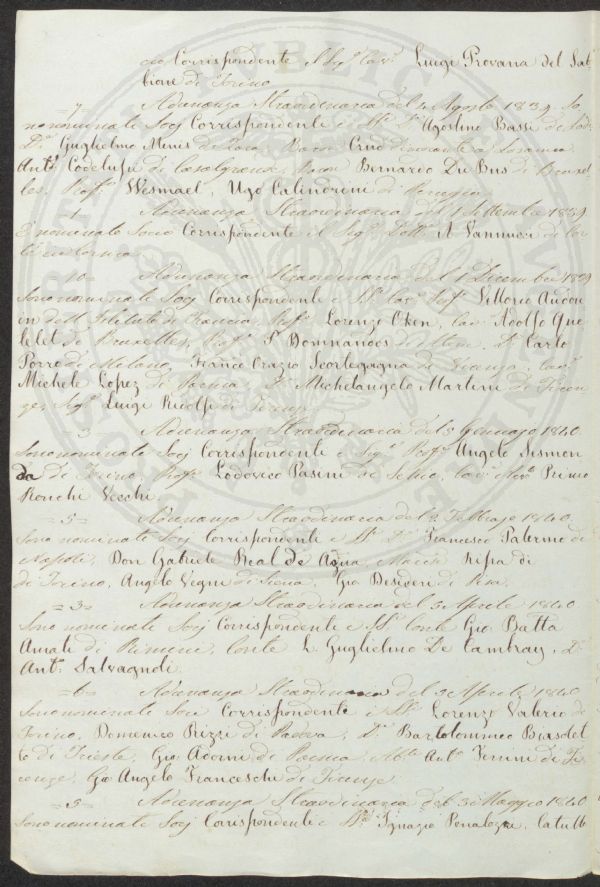 cio Corrispondente il Sigr Cavr Luigi Provana del Sab
bione di Torino
Adunanza Straordinaria del 4 Agosto 1839. So
=7=
no nominati Socj Corrispondenti i SSi Dr Agostino Bassi di Lodi
Dr Guglielmo Menis di Zara, Baron Crud dimorante a Losanna
Anto Codelupi di Casalgrana, Baron Bernardo Du Bus di Bruxel
les, Profr Wesmael, Ugo Calindrini di Perugia
=1=
Adunanza Straordinaria del 1 Settembre 1839
È nominato Socio Corrispondente il Sigr Dottr A Vannucci di
=10=
Adunanza Straordinaria del 1 Decembre 1839
Sono nominati Socj Corrispondenti i SSi Cavr Profr Vittorio Audou
in dell Istituto di Francia, Profr Lorenzo Oken, Cavr Adolfo Que
telet di Bruxelles, Profr Domnandos di Atene, Dr Carlo
Porro di Milano, Franco Orazio Scortegagna di Vicenza, Cavr
Michele Lopez di Parma, Dr Michelangelo Martini di Firen
ze, Sigr Luigi Ridolfi di Firenze
=3=
Adunanza Straordinaria del 5 Gennajo 1840.
Sono nominati Socj Corrispondenti i Sigri Profr Angelo Sismon
da di Torino, Profr Lodovico Pasini di Schio, Cavr Avvo Primo
Ronchi Vecchi.
=5=
Adunanza Straordinaria del 2 Febbrajo 1840.
Sono nominati Socj Corrispondenti i SSi Dr Francesco Palermo di
Napoli, Don Gabriele Real de Aqua, March Ripa di
di Torino, Angelo Vegni di Siena, Gio Desideri di Pisa.
=3=
Adunanza Straordinaria del 5 Aprile 1840
Sono nominati Socj Corrispondenti i SSi Conte Gio Batta
Amati di Rimini, Conte L. Guglielmo De Cambray, Dr
Anto Salvagnoli.
=6=
Adunanza Straordinaria del Aprile 1840
Sono nominati Soci Corrispondenti i SSi Lorenzo Valerio di
Torino, Domenico Rizzi di Padova, Dr Bartolommeo Biasolet
to di Trieste, Gio Adorni di Parma, Abte Anto Verrini di Fi
renze, Gio Angelo Franceschi di Firenze
=3=
Adunanza Straordinaria del 3 Maggio 1840
Sono nominati Socj Corrispondenti i SSri Ignazio Penalozze, Catullo